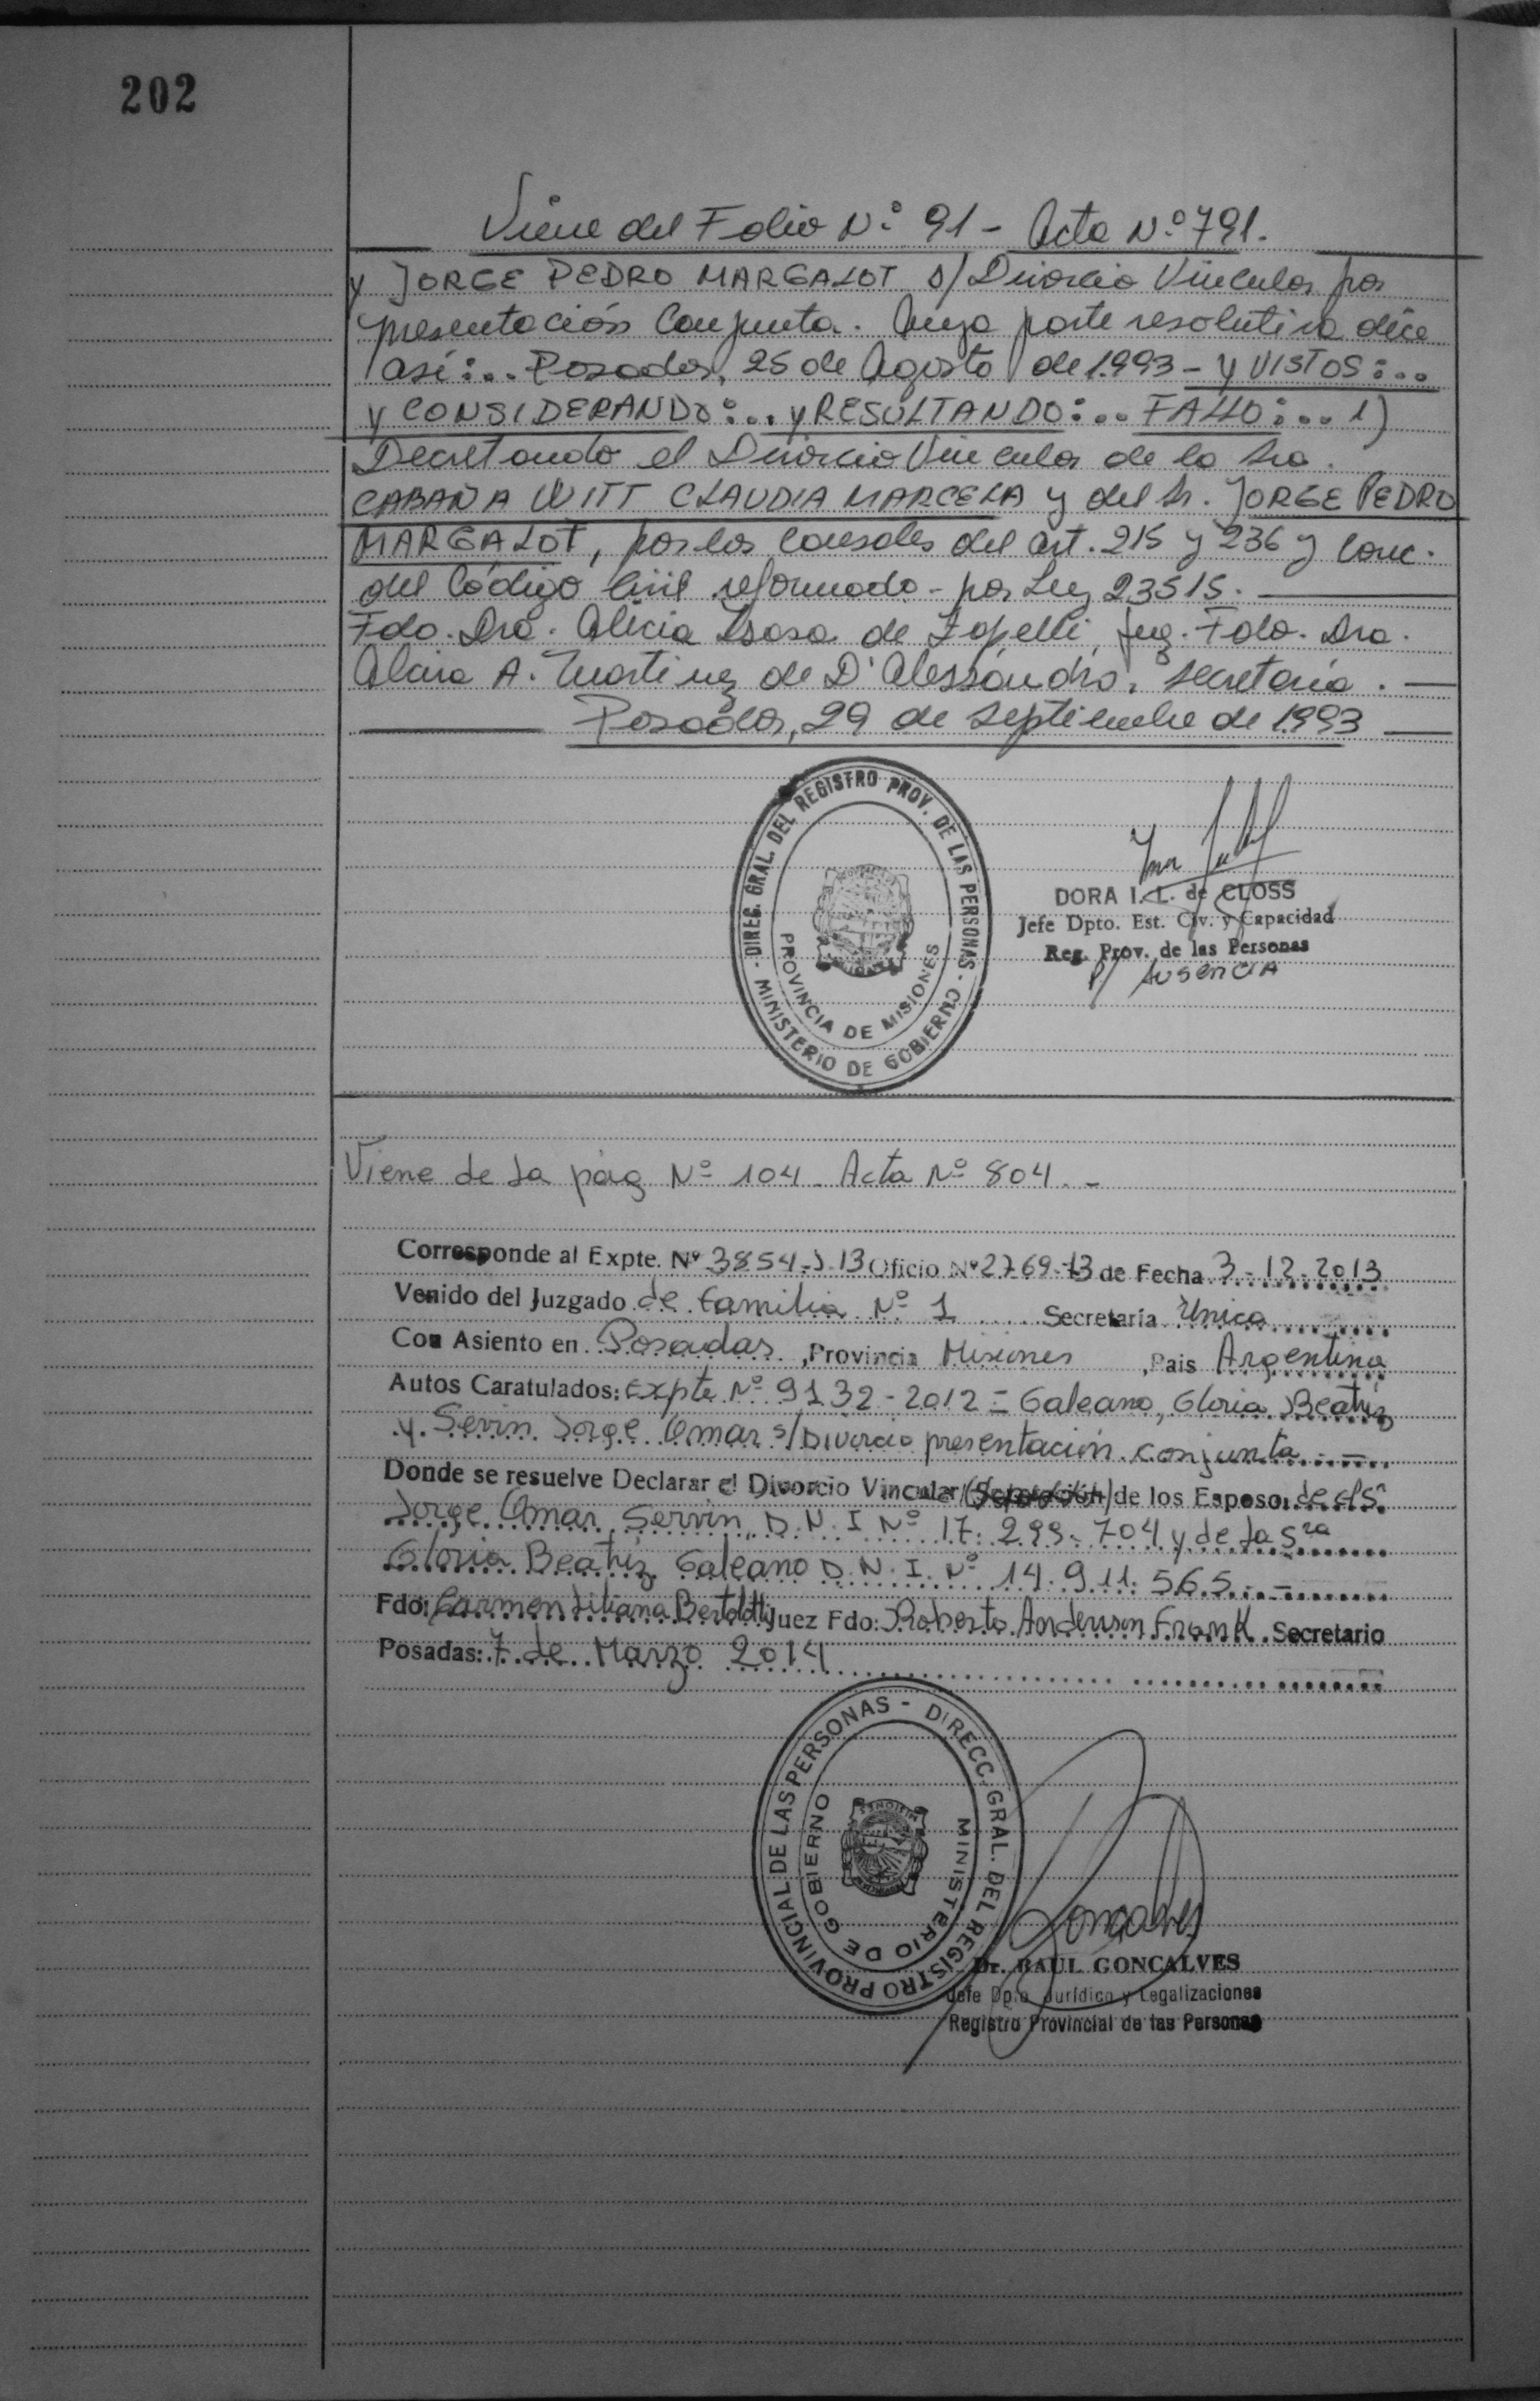 202
Viene del Folio Nº 91 - Acta Nº 791.
y JORGE PEDRO MARGALOT s/ Divorcio Vincular por
presentación Conjunta. Cuya parte resolutiva dice
así:.. Posadas, 25 de Agosto de 1.993 - y VISTOS:..
y CONSIDERANDO:.. y RESULTANDO:.. FALLO:... 1)
Decretando el Divorcio Vincular de la Sra.
CABAÑA WITT CLAUDIA MARCELA y del Sr. JORGE PEDRO
MARGALOT, por las causales del art. 215 y 236 y Conc.
del Código Civil reformado - por Ley 23515.
Fdo. Dra. Alicia de Juez. Fdo. Dra.
Alcira A. Martinez de D'Alessandro, secretaria.
Posadas, 29 de septiembre de 1.993
DIREG. GRAL. DEL REGISTRO PROV. DE LAS PERSONAS - MINISTERIO DE GOBIERNO -
PROVINCIA DE MISIONES
DORA I. L. de CLOSS
Jefe Dpto. Est. Civ. y Capacidad
Reg. Prov. de las Personas
P/ AUSENCIA
Viene de la pág Nº 104 - Acta Nº 804. -
Corresponde al Expte. Nº 3854-J-13 Oficio Nº 2769-13 de Fecha 3-12-2013
Venido del Juzgado de familia Nº 1 Secretaría Unica
Con Asiento en Posadas, Provincia Misiones, Pais Argentina
Autos Caratulados: Expte Nº 9132-2012 = Galeano, Gloria Beatriz
y Servin Jorge Omar s/Divorcio presentación conjunta. -
Donde se resuelve Declarar el Divorcio Vincular (Separación) de los Esposos de el Sr
Jorge Omar Servin, D.N.I Nº 17.299.704 y de la Sra
Gloria Beatriz Galeano D.N.I. Nº 14.911.565. -
Fdo: Carmen Liliana Bertolotti Juez Fdo: Roberto Anderson Frank Secretario
Posadas: 7 de Marzo 2014
DIRECC. GRAL. DEL REGISTRO PROVINCIAL DE LAS PERSONAS -
MINISTERIO DE GOBIERNO
MISIONES
Goncalves
Dr. RAUL GONCALVES
Jefe Dpto. Jurídico y Legalizaciones
Registro Provincial de las Personas